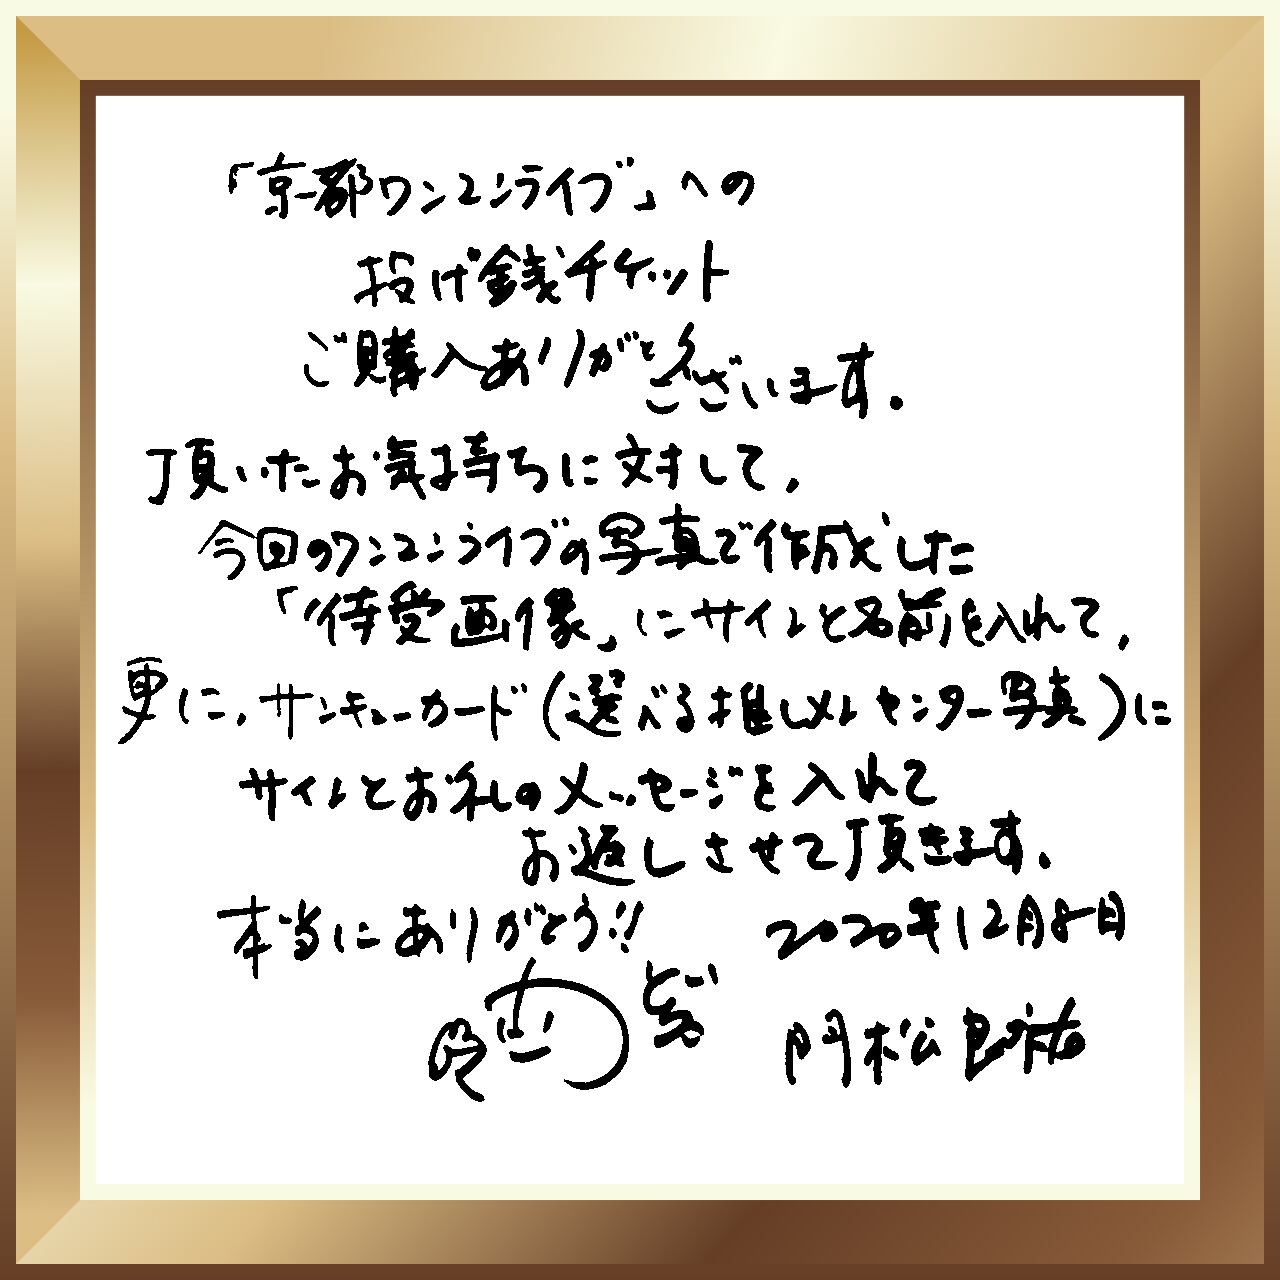 「京都ワンマンライブ」への
投げ銭チケット
ご購入ありがとうございます.
頂いたお気持ちに対して,
今回のワンマンライブの写真で作成した
「待受画像」にサインと名前を入れて,
更に,サンキューカード(選べる推しメンセンター写真)に
サインとお礼のメッセージを入れて
お返しさせて頂きます.
本当にありがとう!!
2020年12月8日
門松良祐